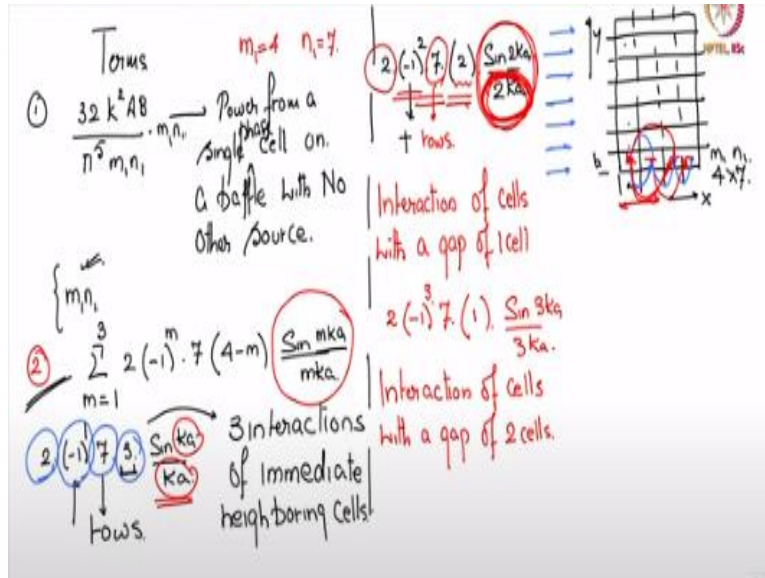 Terms
m₁=4 n₁=7.
① 32 k² AB / π⁵ m₁n₁ · m₁n₁ → Power from a
single phase cell on.
a baffle with No
other source.
{ m₁n₁
② Σ_{m=1}^{3} 2 (-1)^m · 7 (4-m) Sin mka / mka
2 (-1)^1 7 3. Sin ka / ka
rows.
3 interactions
of immediate
neighboring cells.
2 (-1)² 7. (2) Sin 2ka / 2ka
+ rows.
Interaction of cells
with a gap of 1 cell
2 (-1)³ 7. (1). Sin 3ka / 3ka.
Interaction of cells
with a gap of 2 cells.
y
b
m₁ n₁
4x7.
x